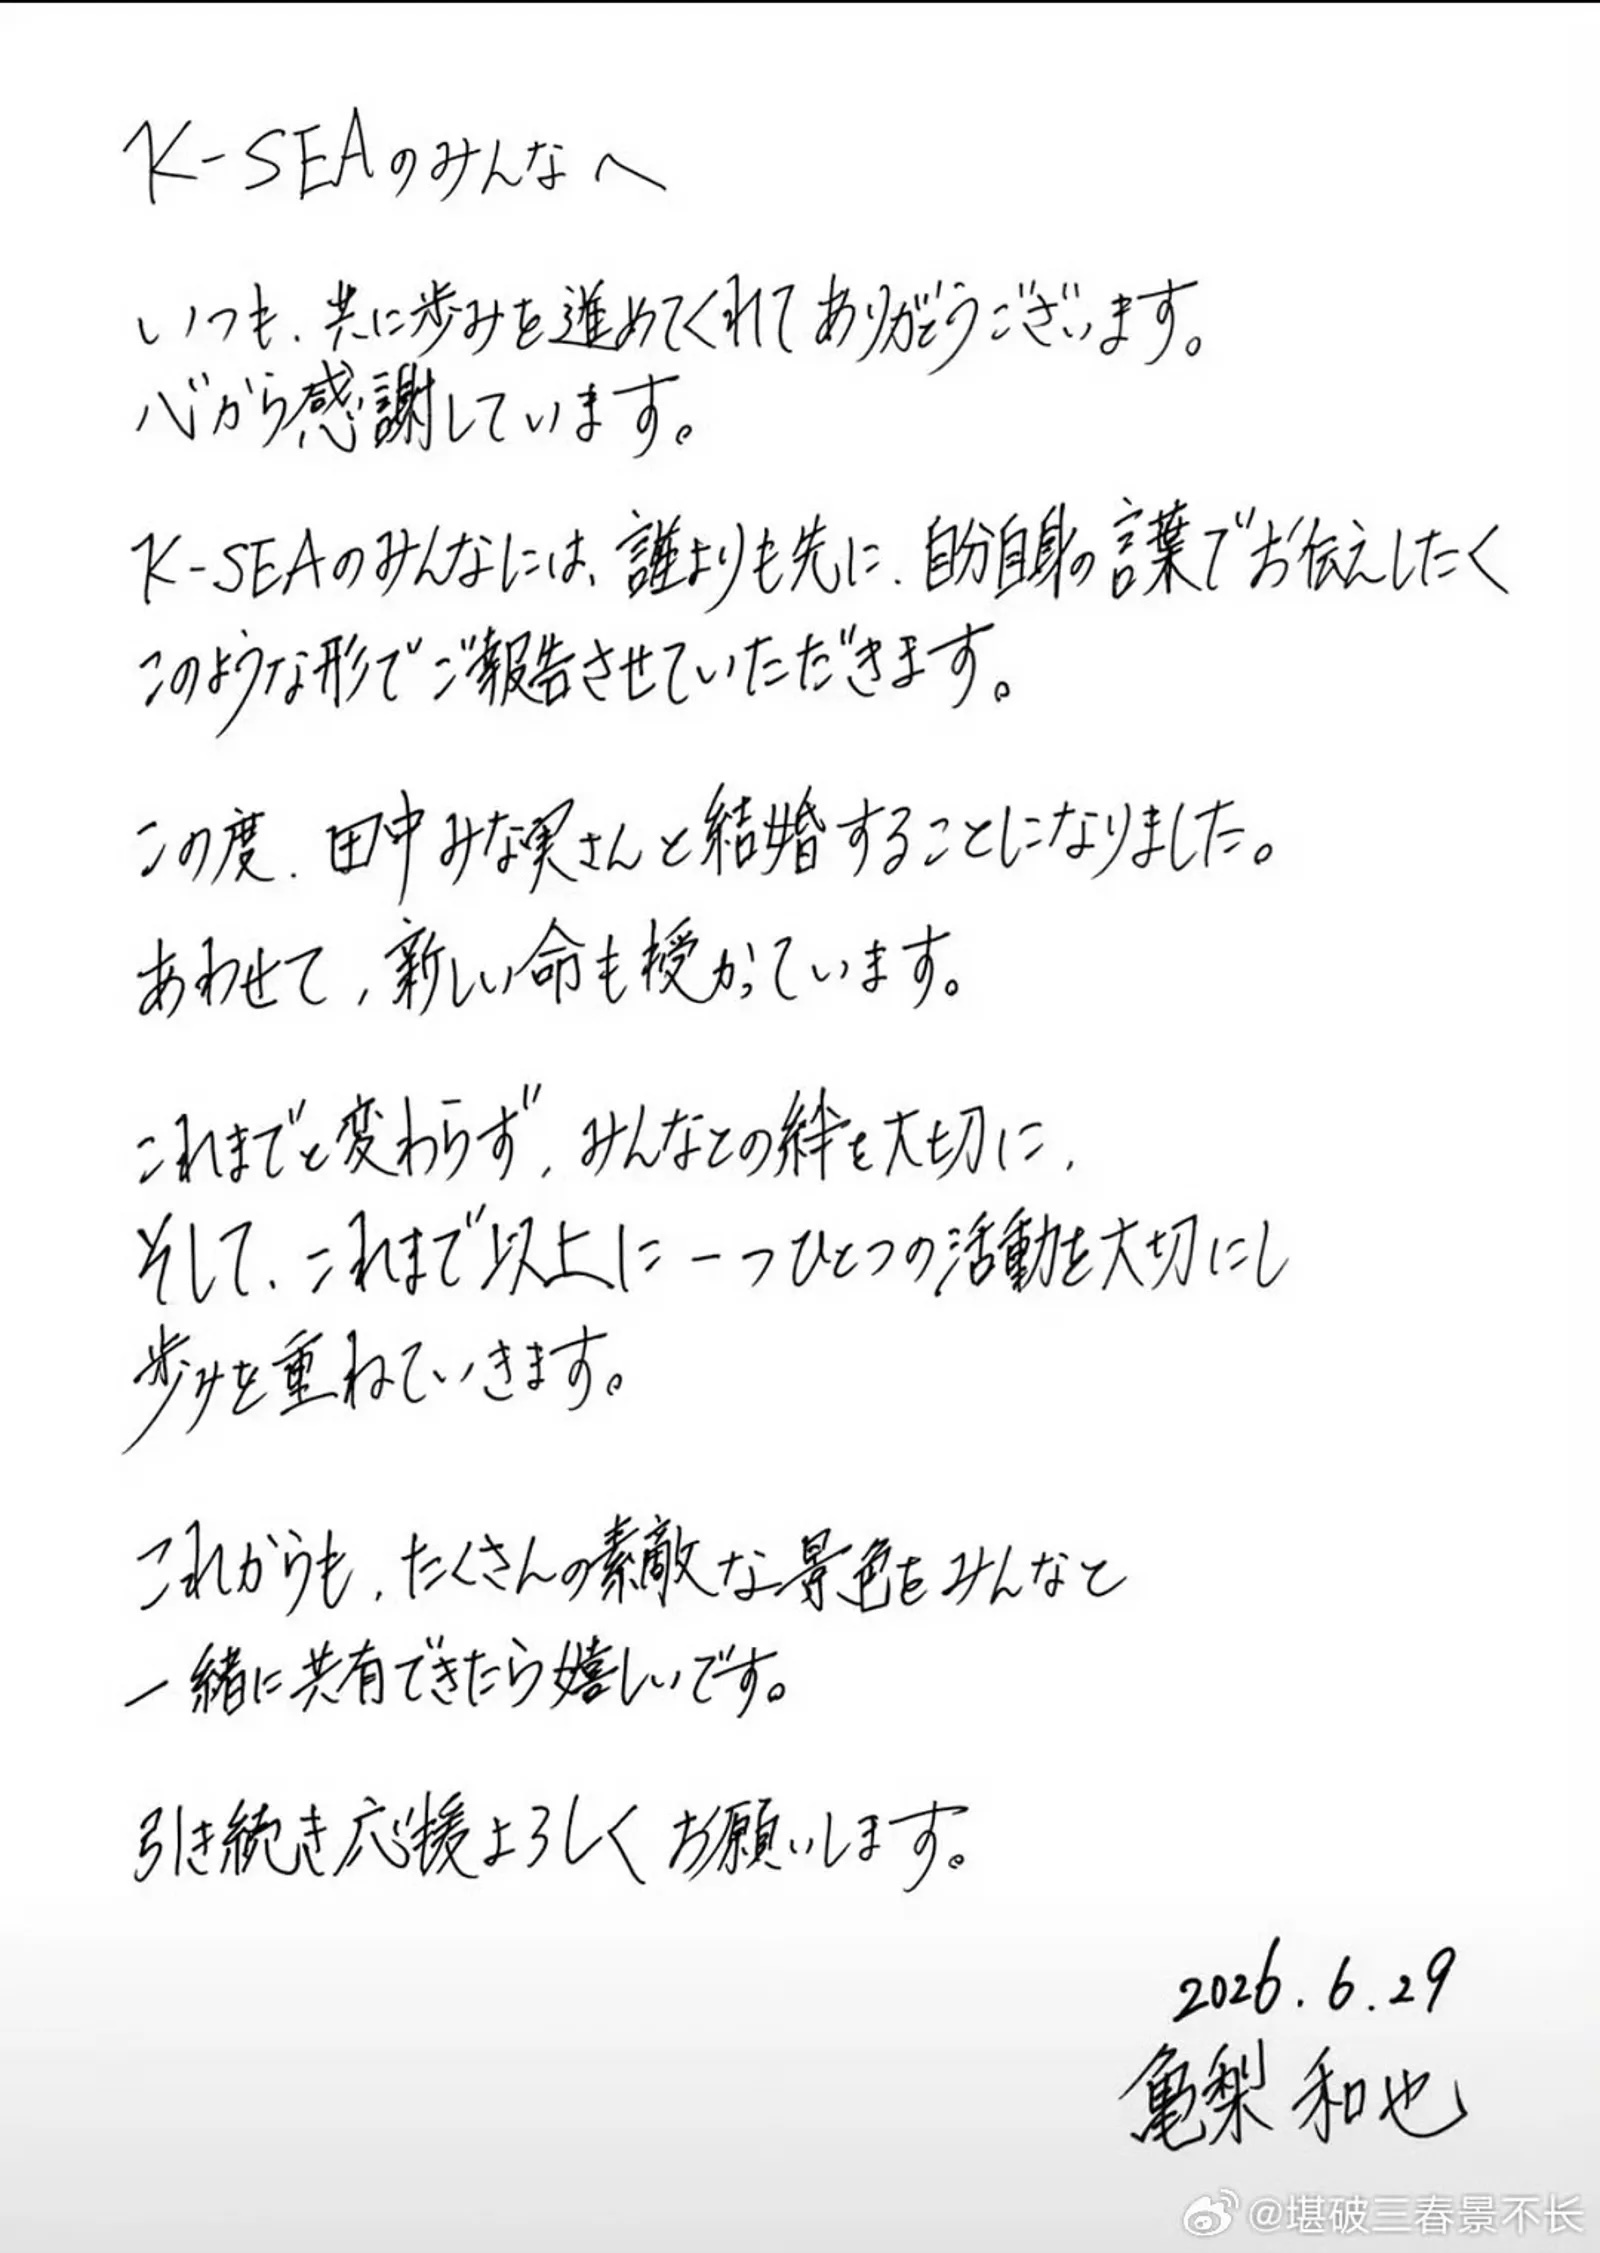 K-SEAのみんなへ
いつも、共に歩みを進めてくれてありがとうございます。
心から感謝しています。
K-SEAのみんなには、誰よりも先に、自分自身の言葉でお伝えしたく
このような形でご報告させていただきます。
この度、田中みな実さんと結婚することになりました。
あわせて、新しい命も授かっています。
これまでと変わらず、みんなとの絆を大切に、
そして、これまで以上に一つひとつの活動を大切にし
歩みを重ねていきます。
これからも、たくさんの素敵な景色をみんなと
一緒に共有できたら嬉しいです。
引き続き応援よろしくお願いします。
2026.6.29
亀梨 和也
@堪破三春景不长